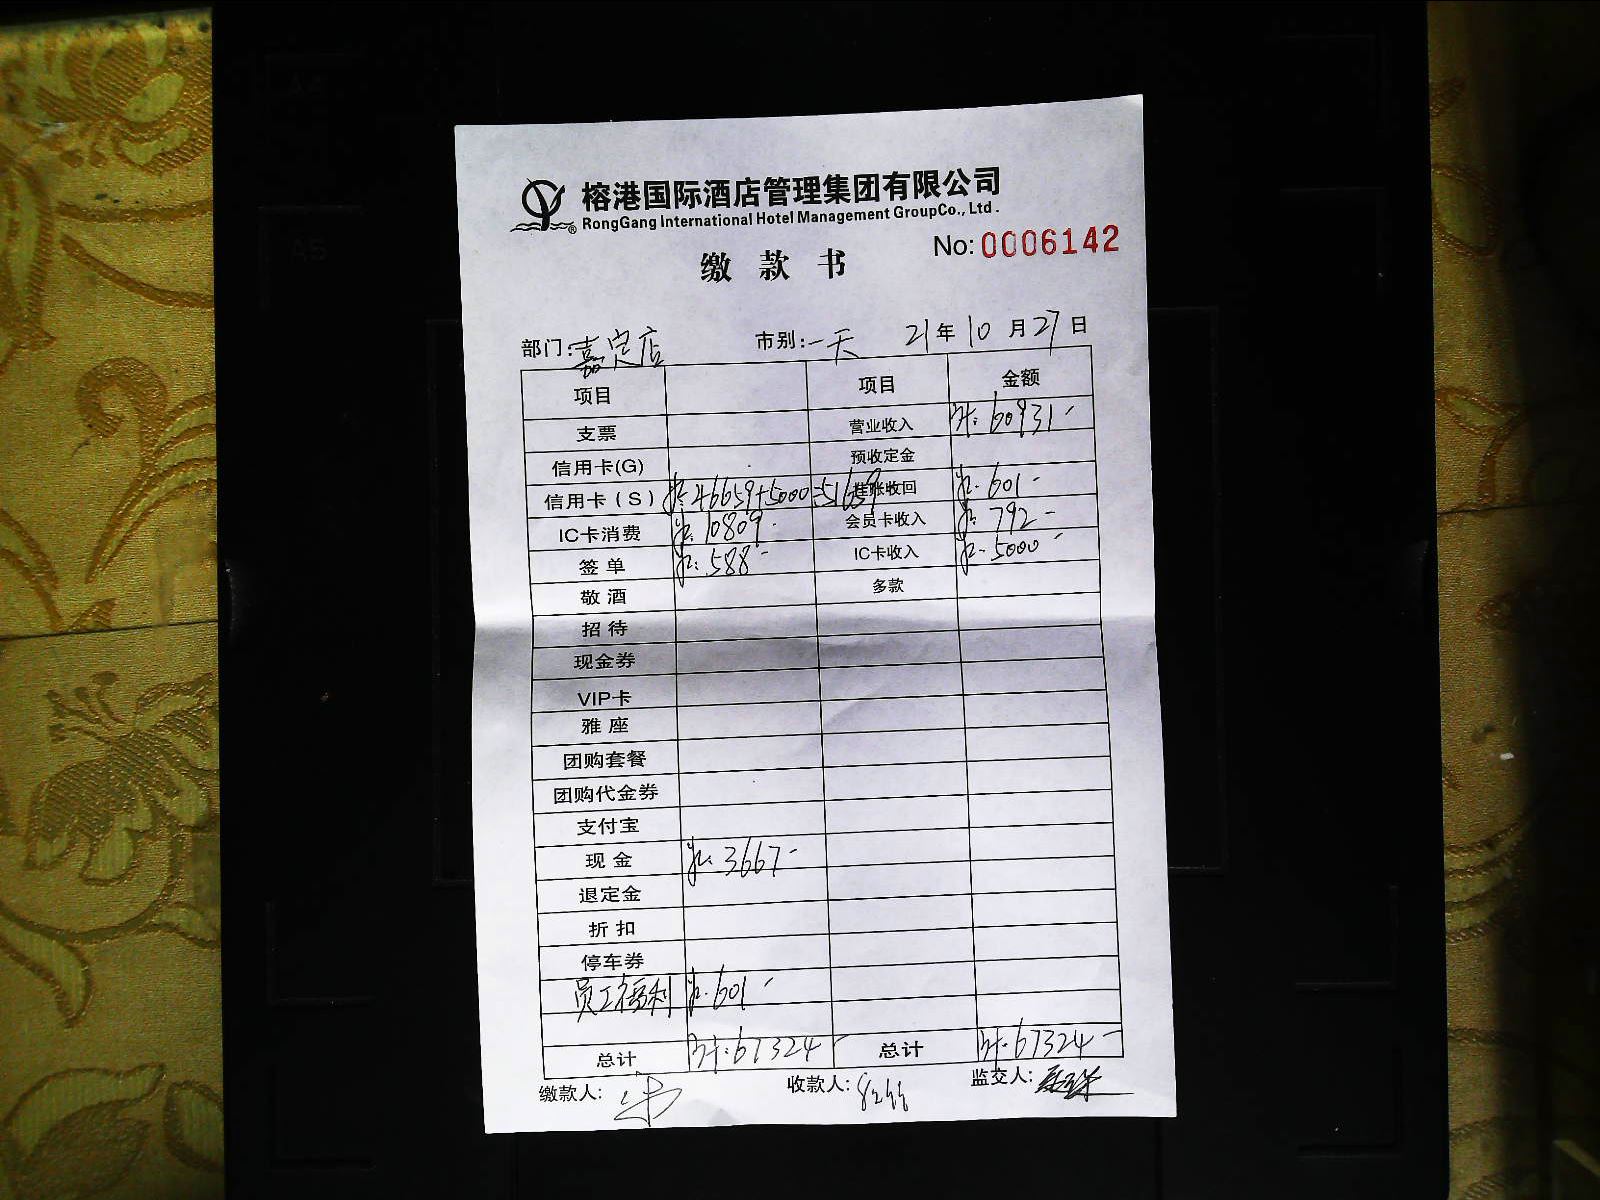 榕港国际酒店管理集团有限公司
RongGang International Hotel Management GroupCo., Ltd.
No: 0006142
缴款书
部门: 嘉定店 市别: 一天 21年10月27日
项目 项目 金额
支票 营业收入 计: 60931-
信用卡(G) 预收定金
信用卡(S) 46659+5000=51659 挂账收回 601-
IC卡消费 10809- 会员卡收入 792-
签单 588- IC卡收入 5000-
敬酒 多款
招待
现金券
VIP卡
雅座
团购套餐
团购代金券
支付宝
现金 3667-
退定金
折扣
停车券
员工福利 601-
总计 计: 67324- 总计 计: 67324-
缴款人: 收款人: 监交人: